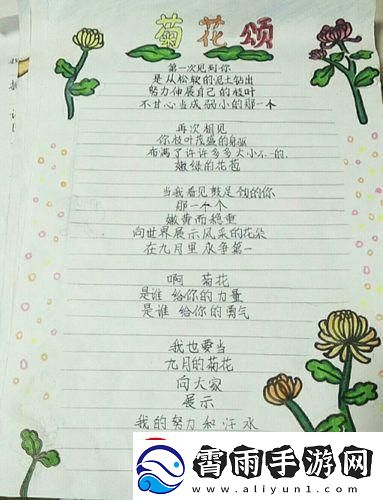 菊花颂
第一次见到你
是从松软的泥土钻出
努力伸展自己的枝叶
不甘心当成弱小的那一个
再次相见
你枝叶茂盛的身躯
布满了许许多多大小不一的
嫩绿的花苞
当我看见鼓足劲的你
那一个个
嫩黄而稳重
向世界展示风采的花朵
在九月里永争第一
啊 菊花
是谁 给你的力量
是谁 给你的勇气
我也要当
九月的菊花
向大家
展示
我的努力和汗水
霄雨手游网
www.aliyun1.com